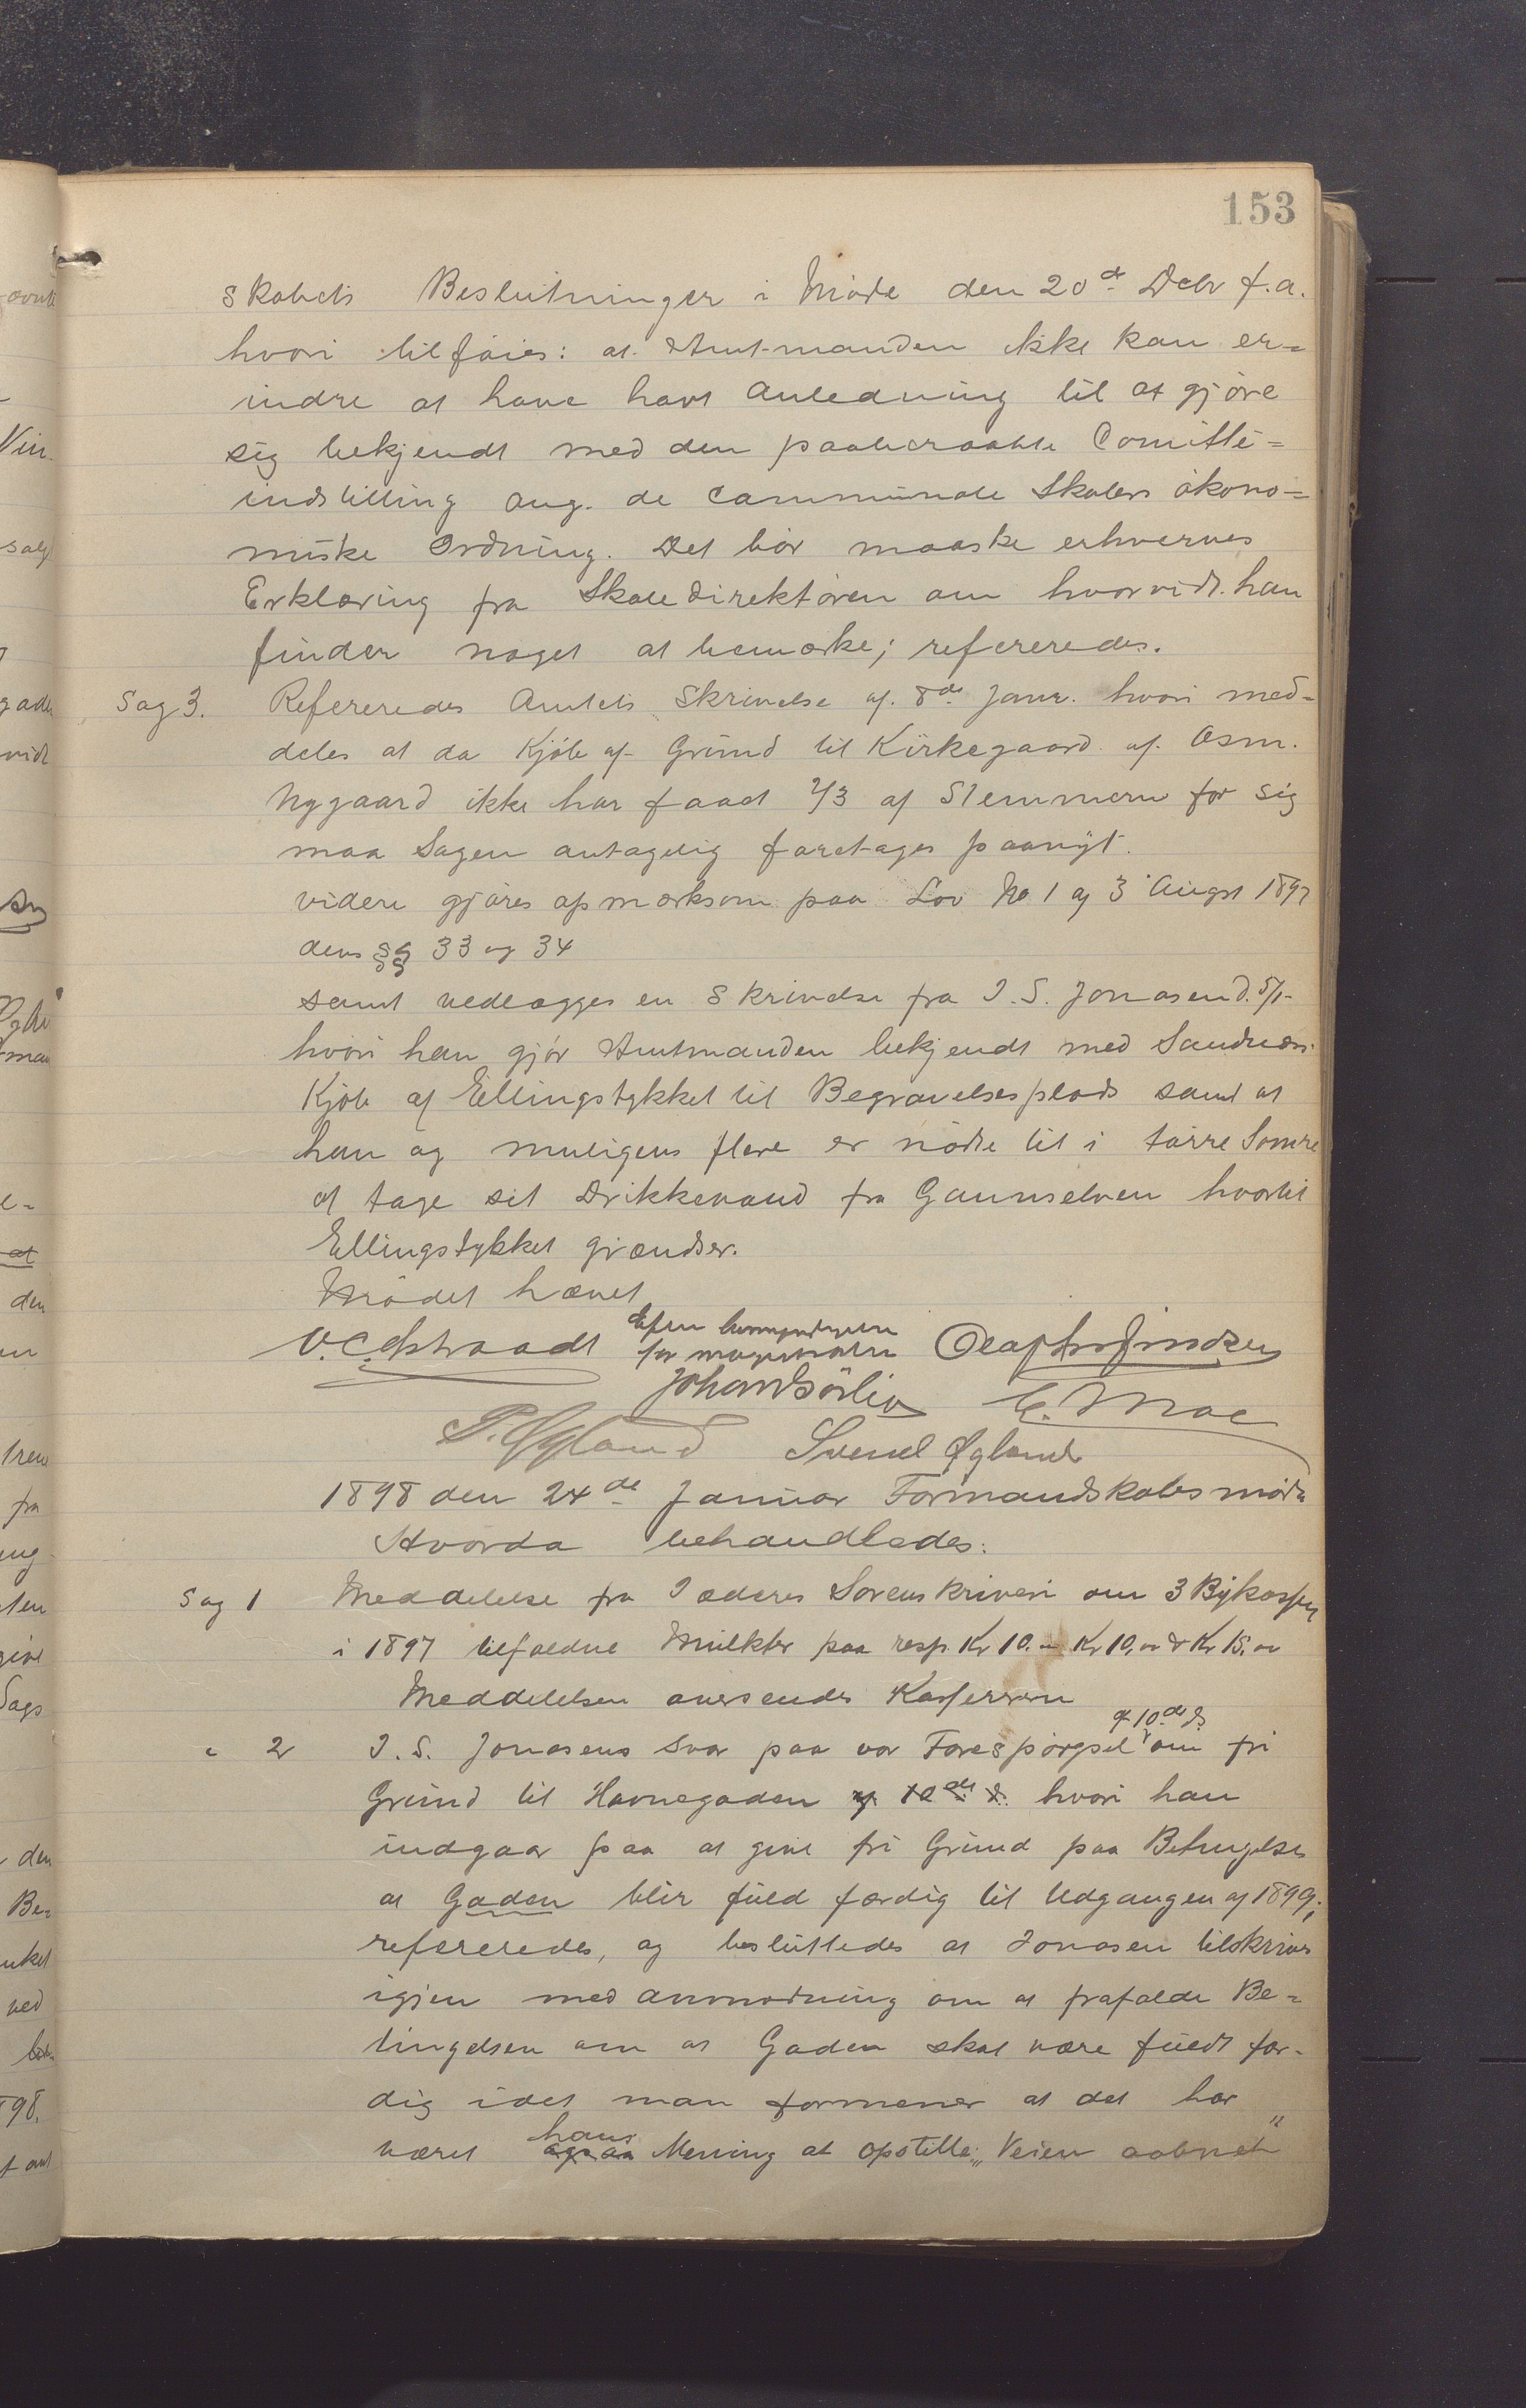 153
skabets Beslutninger i Möde den 20de Debr f.a.
hvori tilföies: at Amtmanden ikke kan er=
indre at have havt Anledning til at gjöre
sig bekjendt med den paaberaabte Comitte=
indstilling ang. de communale Skolers ökono=
miske Ordning. Det bör maaske erhverves
Erklæring fra Skoledirektören om hvorvidt han
finder noget at bemærke; refereredes.
Sag 3. Refereredes Amtets Skrivelse af 8de Janr. hvori med=
deles at da Kjöb af Grund til Kirkegaard af Asm.
Nygaard ikke har faaet 2/3 af Stemmerne for sig
maa Sagen antagelig foretages paanyt.
videre gjöres opmærksom paa Lov No 1 af 3 August 1897
dens §§ 33 og 34
samt vedlægges en Skrivelse fra J. S. Jonasen d. 5/1
hvori han gjör Amtmanden bekjendt med Sandnæs
Kjöb af Ellingstykket til Begravelsesplads samt at
han og muligens flere er nödte til i törre Somre
at tage sit Drikkevand fra Gannselven hvortil
Ellingstykket grændser.
Mödet hævet
Efter bemyndigelse
for magistraten
Johan Sörlie
P. Ogland Svend Ogland
1898 den 24de Januar Formandskabsmöde
Hvorda behandledes:
Sag 1 Meddelelse fra Jæderens Sorenskriveri om 3 Bykassen
i 1897 tilfaldne Mulkter paa resp. Kr 10.00 Kr 10,00 & Kr 15.00
Meddelelsen oversendes Kassereren
" 2 J. S. Jonasens Svar paa vor Forespörgsel af 10de ds om fri
Grund til Havnegaden af 10de d. hvori han
indgaar paa at give fri Grund paa Betingelse
at Gaden blir fuld færdig til Udgangen af 1899;
refereredes, og besluttedes at Jonasen tilskrives
igjen med Anmodning om at frafalde Be=
tingelsen om at Gaden skal være fuldt fær=
dig idet man formener at det har
været hans Mening at opstille "Veien aabnet"